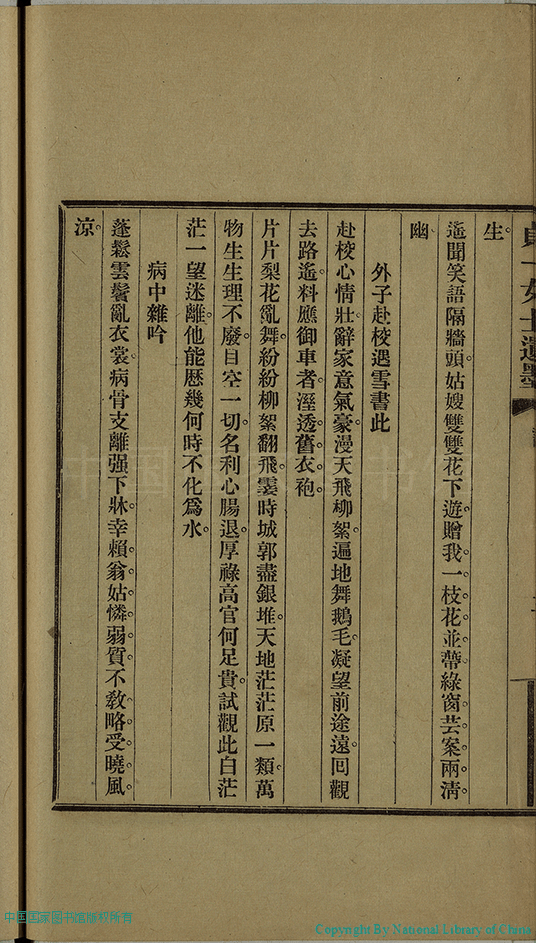 貞一女士遺墨
生
遙聞笑語隔牆頭姑嫂雙雙花下遊贈我一枝花並蒂綠窗芸案兩清
幽
外子赴校遇雪書此
赴校心情壯辭家意氣豪漫天飛柳絮遍地舞鵝毛凝望前途遠囘觀
去路遙料應御車者溼透舊衣袍
片片梨花亂舞紛紛柳絮翻飛霎時城郭盡銀堆天地茫茫原一類萬
物生生理不廢目空一切名利心腸退厚祿高官何足貴試觀此白茫
茫一望迷離他能歴幾何時不化爲水
病中雜吟
蓬鬆雲鬢亂衣裳病骨支離强下牀幸賴翁姑憐弱質不教略受曉風
涼
中国国家图书馆
中国国家图书馆版权所有
Copyright By National Library of China